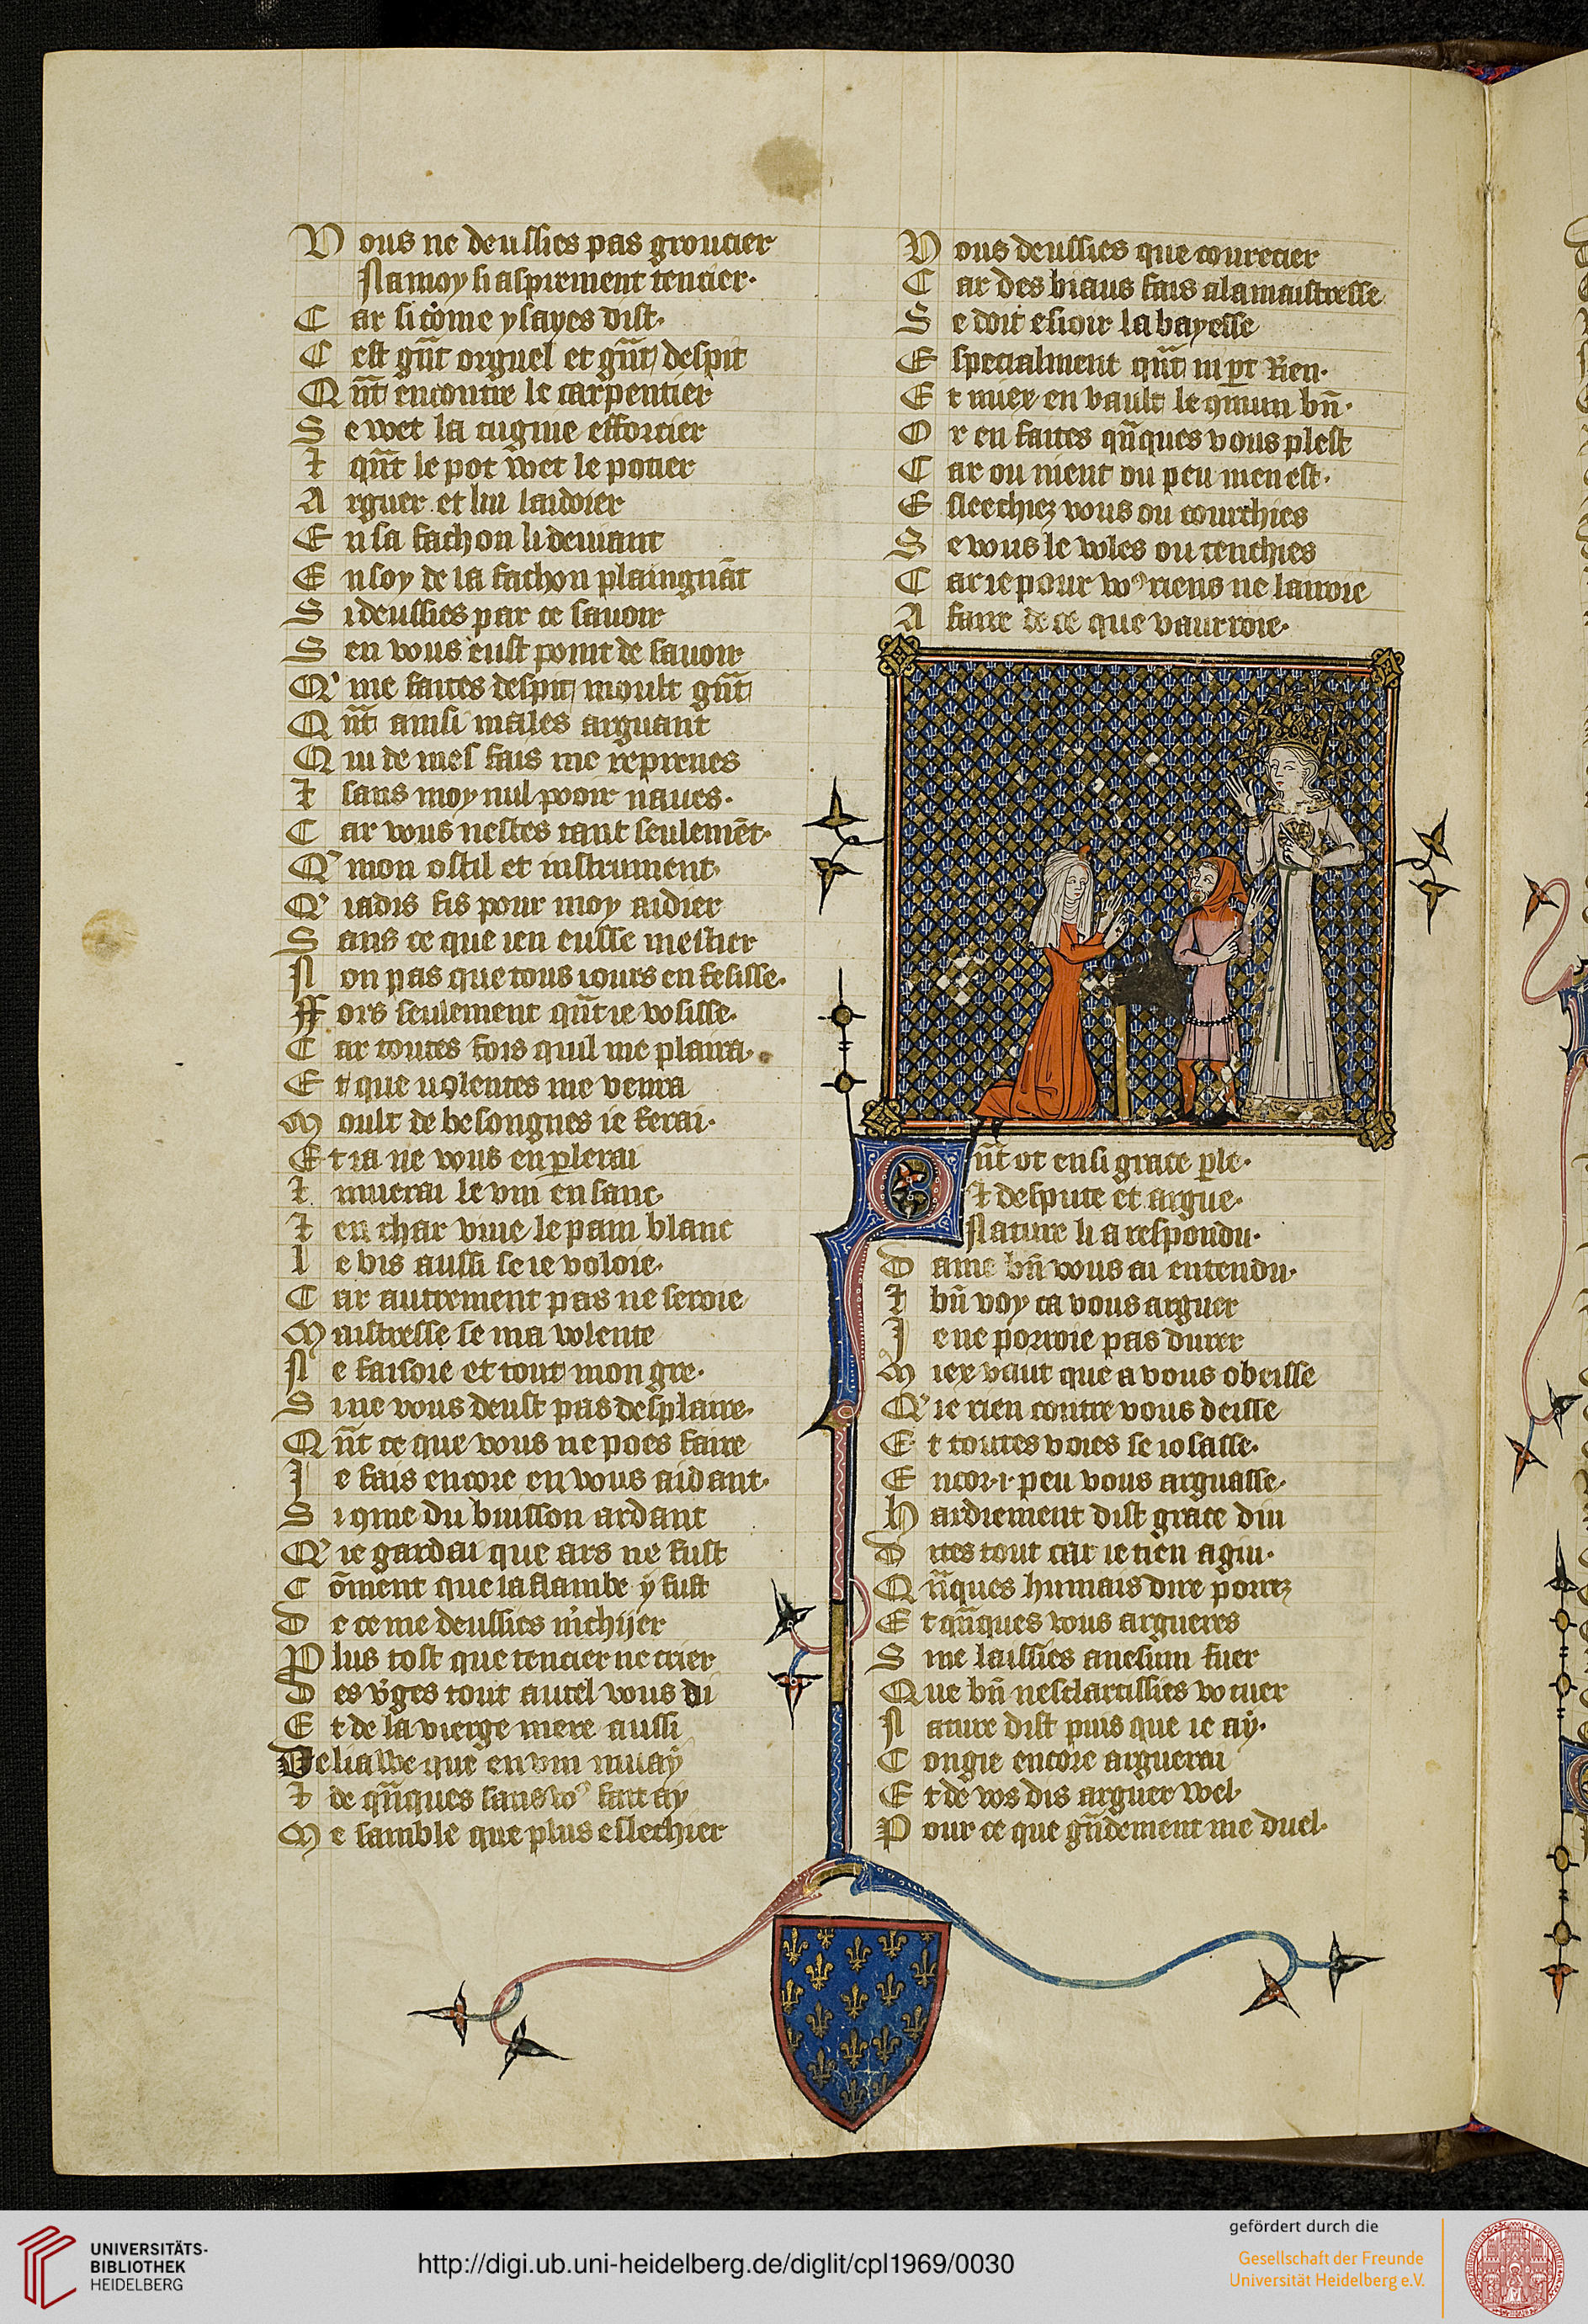 Vous ne deussies pas groucier
Na moy si asprement tencier.
Car si cōme ysayes dist.
Cest gn̄t orguel et gn̄t despit
Qn̄t encontre le carpentier
Se voet la cugnie efforcier
⁊ qn̄t le pot voet le potier
Arguer et lui laidoier
En sa fachon li deuiant
En soy de la fachon plaingnāt
Si deussies par ce sauoir
Sen vous eust point de sauoir
Q' me faites despit moult gn̄t
Qn̄t ainsi males arguant
Qui de mes fais me reprenes
⁊ sans moy nul pooir naues.
Car vous nestes tant seulemēt.
Q' mon ostil et instrument.
Q' iadis fis pour moy aidier
Sans ce que ien eusse mestier
Non pas que tous iours en fesisse.
Ffors seulement qn̄t ie vosisse.
Car toutes fois quil me plaira.
Et que uolentes me venra
Moult de besongnes ie ferai.
Et ia ne vous en p̱lerai
⁊ muerai le vin en sanc
⁊ en char viue le pain blanc
le bis aussi se ie voloie.
Car autrement pas ne seroie
Maistresse se ma volente
Ne faisoie et tout mon gre.
Si ne vous deust pas desplaire.
Qn̄t ce que vous ne poes faire
Je fais encore en vous aidant.
Si 9me du buisson ardant
Q' ie gardai que ars ne fust
Cōment que la flambe y fust
De ce me deussies m'chijer
Plus tost que tencier ne crier
Des v'ges tout autel vous di
Et de la vierge mere aussi
De liawe que en vin muay
⁊ de qn̄ques sans vo9 fait ay
Me samble que plus eslechier
Vous deussies que courecier
Car des biaus fais a la maistresse
Se doit esioir la bayesse
Especialment qn̄t ni p̱t Rien.
Et muer en vault le 9mun bn̄.
Or en faites qn̄ques vous plest
Car ou nient ou peu men est.
Esleechiez vous ou courchies
Se vous le voles ou tenchies
Car ie pour vo9 riens ne lairoie
A faire de ce que vaurroie.
Qn̄t ot ensi grace p̱le.
⁊ despute et argue.
Nature li a respondu.
Dame bn̄ vous ai entendu.
⁊ bn̄ voy ca vous arguer
Je ne porroie pas durer
Miex vaut que a vous obeisse
Q' ie rien contre vous deisse
Et toutes voies se iosasse.
Encor .i. peu vous arguasse.
Hardiement dist grace diu
Dites tout car ie tien a giu.
Qn̄ques humais dire porrez
Et qn̄ques vous argueres
Que bn̄ nesclarcissies vo cuer
Nature dist puis que ie ay.
Congie encore arguerai
Et de vos dis arguer voel.
Pour ce que gn̄dement me duel.
UNIVERSITÄTS-
BIBLIOTHEK
HEIDELBERG
http://digi.ub.uni-heidelberg.de/diglit/cpl1969/0030
gefördert durch die
Gesellschaft der Freunde
Universität Heidelberg e.V.